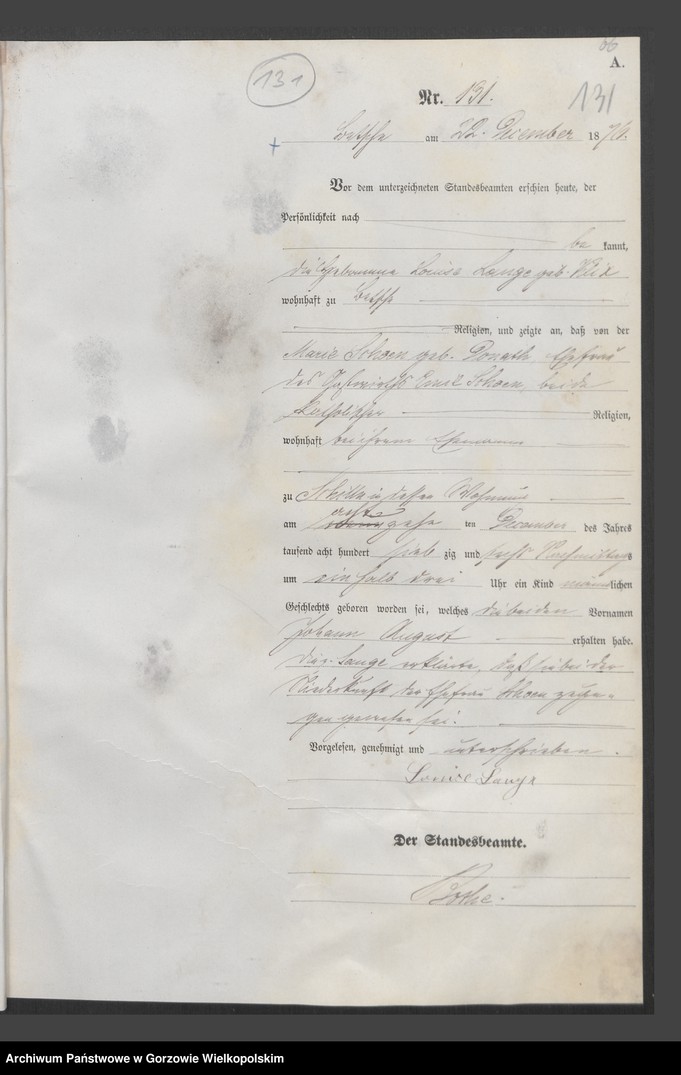 86
A.
131
Nr. 131.
131
Betsche am 22. December 1876.
Vor dem unterzeichneten Standesbeamten erschien heute, der
Persönlichkeit nach
be kannt,
die Hebamme Louise Lange geb.
wohnhaft zu Betsche
Religion, und zeigte an, daß von der
Marie Schoen geb. Donath, Ehefrau
des Gastwirths Emil Schoen, beide
katholischer Religion,
wohnhaft bei ihrem Ehemanne
zu in dessen Wohnung
am acht zehn ten December des Jahres
tausend acht hundert sieb zig und sechs Nachmittags
um ein halb drei Uhr ein Kind männlichen
Geschlechts geboren worden sei, welches die beiden Vornamen
Johann August erhalten habe.
Die Lange erklärte, daß sie bei der
Niederkunft der Ehefrau Schoen zuge-
gen gewesen sei.
Vorgelesen, genehmigt und unterschrieben.
Louise Lange
Der Standesbeamte.
Archiwum Państwowe w Gorzowie Wielkopolskim